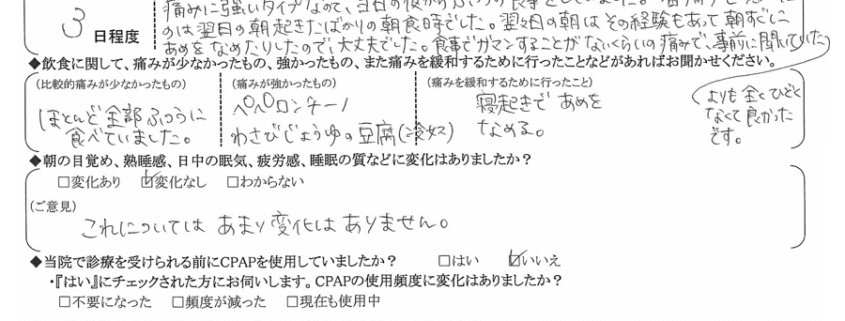 痛みに強いタイプなので、当日の夜からふつうの食事をしていました。
3 日程度
のは翌日の朝起きたばかりの朝食時でした。翌々日の朝はその経験もあって朝すぐに
あめをなめたりしたので、大丈夫でした。食事でガマンすることがないくらいの痛みで、事前に聞いていた
よりも全くひどく
なくて良かった
です。
◆飲食に関して、痛みが少なかったもの、強かったもの、また痛みを緩和するために行ったことなどがあればお聞かせください。
(比較的痛みが少なかったもの)
ほとんど全部ふつうに
食べていました。
(痛みが強かったもの)
ペペロンチーノ
わさびじょうゆの豆腐(冷奴)
(痛みを緩和するために行ったこと)
寝起きであめを
なめる。
◆朝の目覚め、熟睡感、日中の眠気、疲労感、睡眠の質などに変化はありましたか?
□変化あり ☑変化なし □わからない
(ご意見)
これについてはあまり変化はありません。
◆当院で診療を受けられる前にCPAPを使用していましたか? □はい ☑いいえ
・『はい』にチェックされた方にお伺いします。CPAPの使用頻度に変化はありましたか?
□不要になった □頻度が減った □現在も使用中